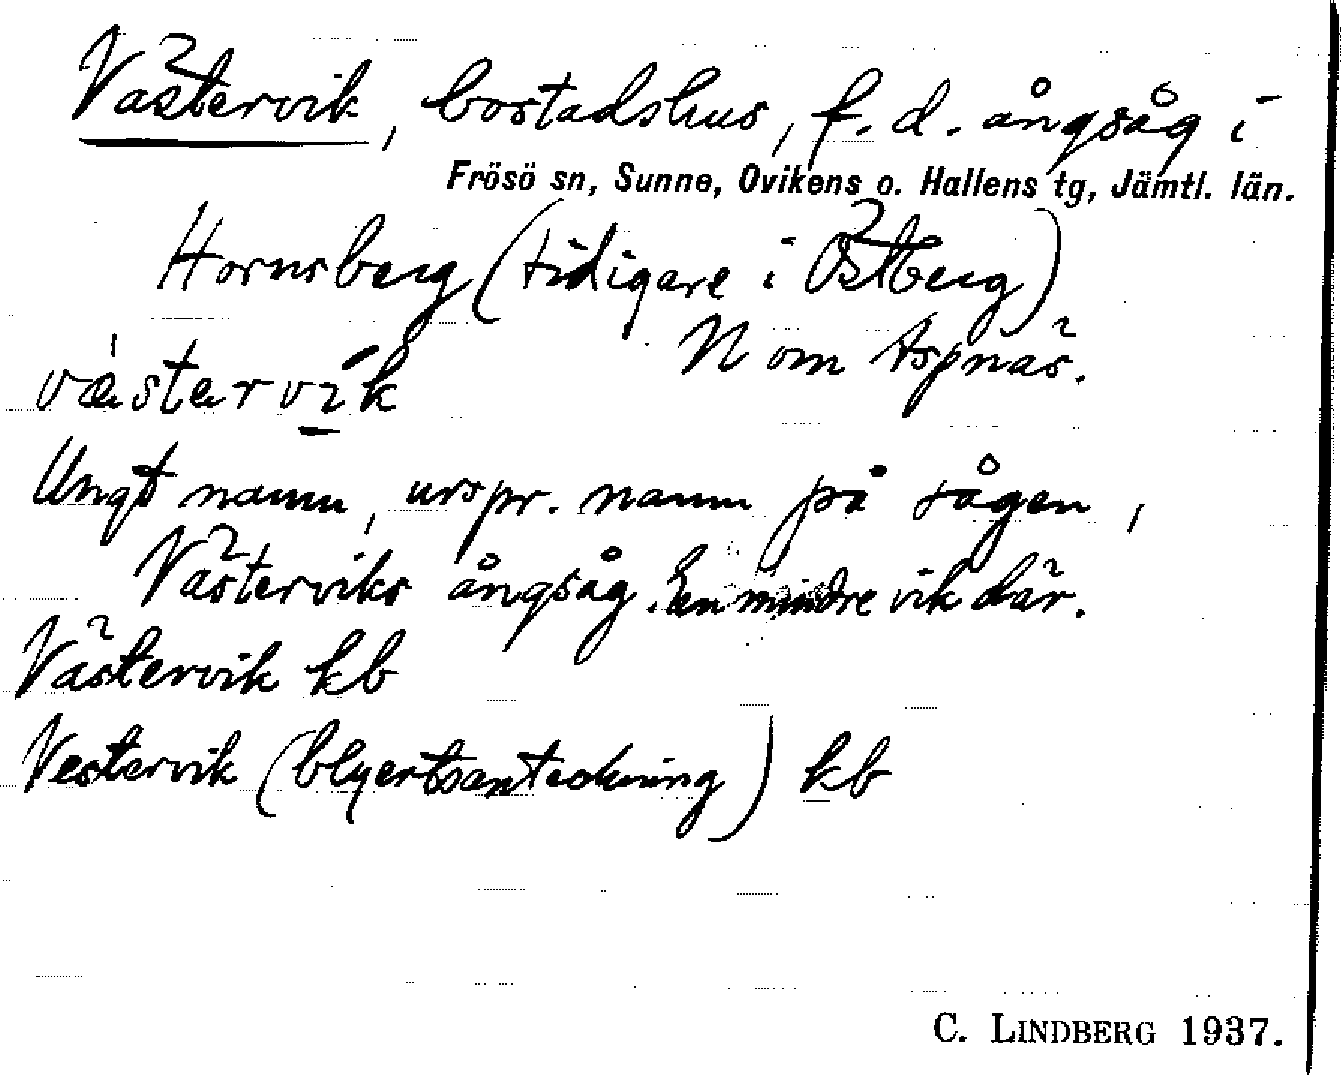 Västervik, bostadshus, f.d. ångsåg i
Frösö sn, Sunne, Ovikens o. Hallens tg, Jämtl. län.
Hornsberg (tidigare i Östberg)
N om Aspnäs.
væ̀stərvī́k
Ungt namn, urspr. namn på sågen,
Västerviks ångsåg. En mindre vik där.
Västervik kb
Vestervik (blyertsanteckning) kb
C. LINDBERG 1937.